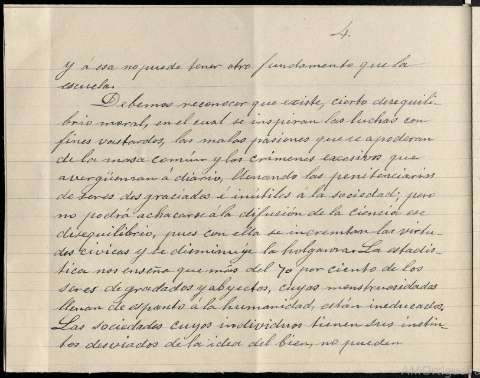 4.
y á esa no puede tener otro fundamento que la
escuela.
Debemos reconocer que existe, cierto desequili-
brio moral, en el cual se inspiran las luchas con
fines vastardos, las malas pasiones que se apoderan
de la masa común y los crímenes excesivos que
avergüenzan á diario, llenando las penitenciarías
de seres desgraciados é inútiles á la sociedad; pero
no podrá achacarse a la difusión de la ciencia ese
desequilibrio, pues con ella se incrementan las virtu-
des cívicas y se disminuye la holganza. La estadís-
tica nos enseña que más del 70 por ciento de los
seres degradados y abyectos, cuyas monstruosidades
llenan de espanto á la humanidad, están ineducados.
Las sociedades cuyos individuos tienen sus instin-
tos desviados de la idea del bien, no pueden